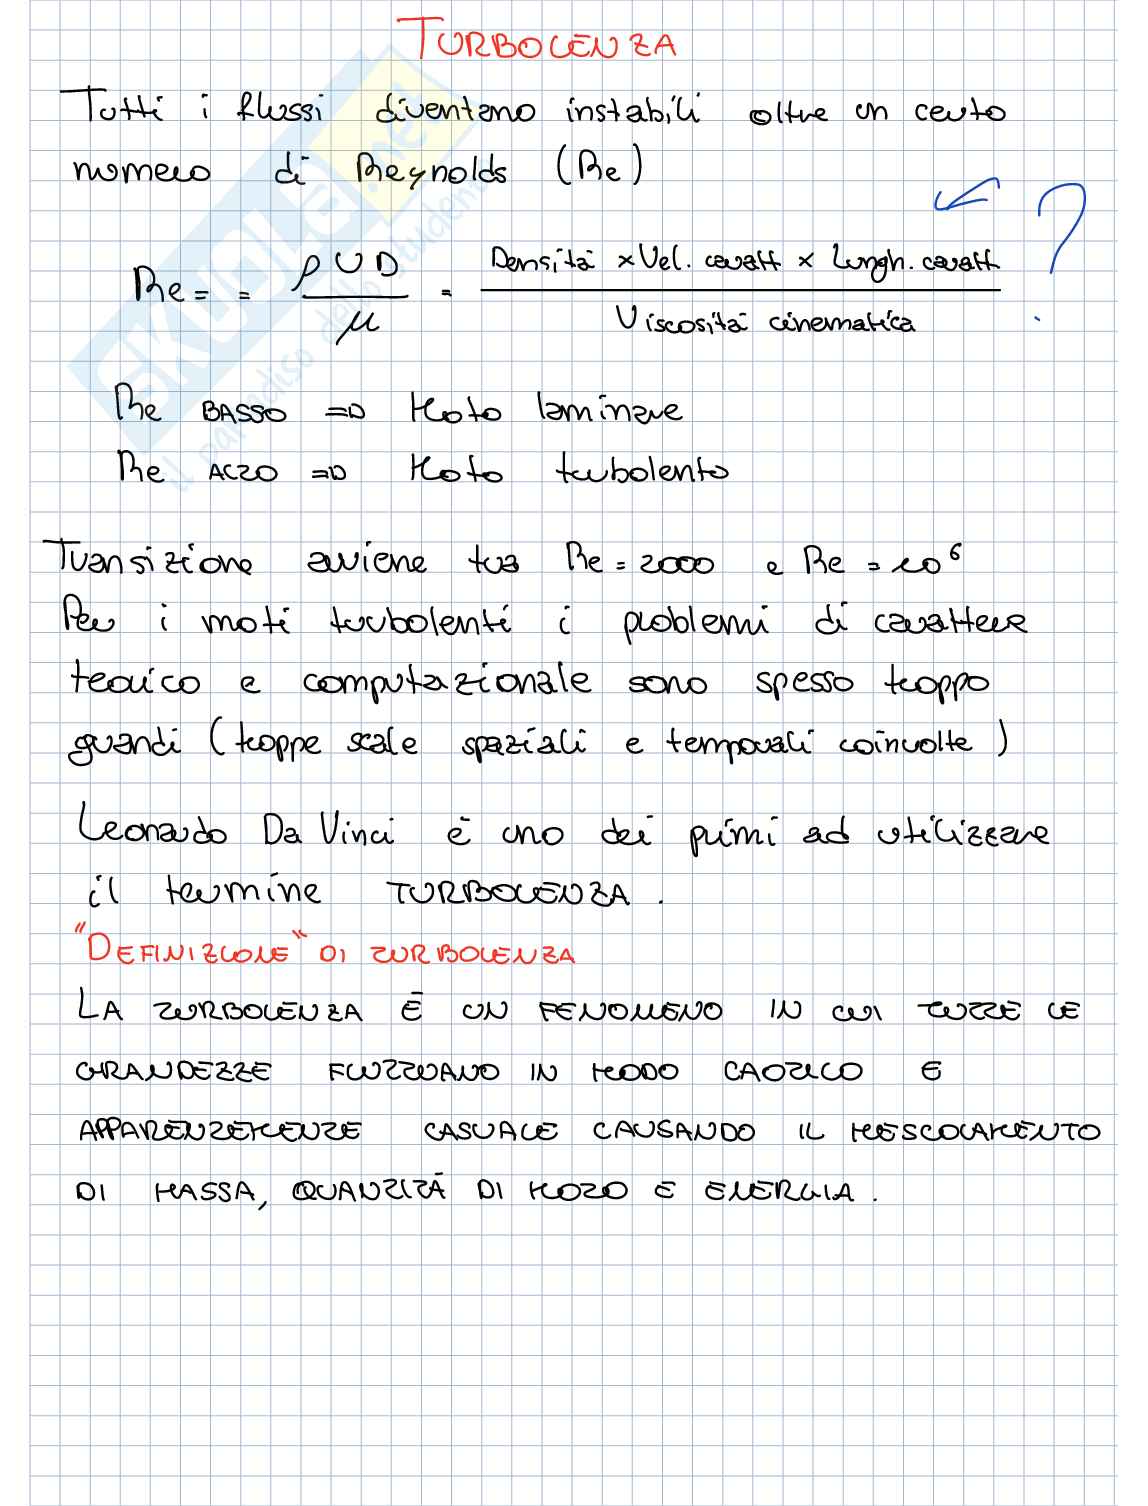 TURBOLENZA
Tutti i flussi diventano instabili oltre un certo
numero di Reynolds (Re)
?
Re = = ρUD / μ = Densità × Vel. caratt × Lungh. caratt / Viscosità cinematica
Re BASSO => Moto laminare
Re ALTO => Moto turbolento
Transizione avviene tra Re = 2000 e Re = 10⁶
Per i moti turbolenti i problemi di carattere
teorico e computazionale sono spesso troppo
grandi (troppe scale spaziali e temporali coinvolte)
Leonardo Da Vinci è uno dei primi ad utilizzare
il termine TURBOLENZA.
"DEFINIZIONE" DI TURBOLENZA
LA TURBOLENZA È UN FENOMENO IN CUI TUTTE LE
GRANDEZZE FLUTTUANO IN MODO CAOTICO E
APPARENTEMENTE CASUALE CAUSANDO IL MESCOLAMENTO
DI MASSA, QUANTITÀ DI MOTO E ENERGIA.
SKUOLA.net
il paradiso dello studente